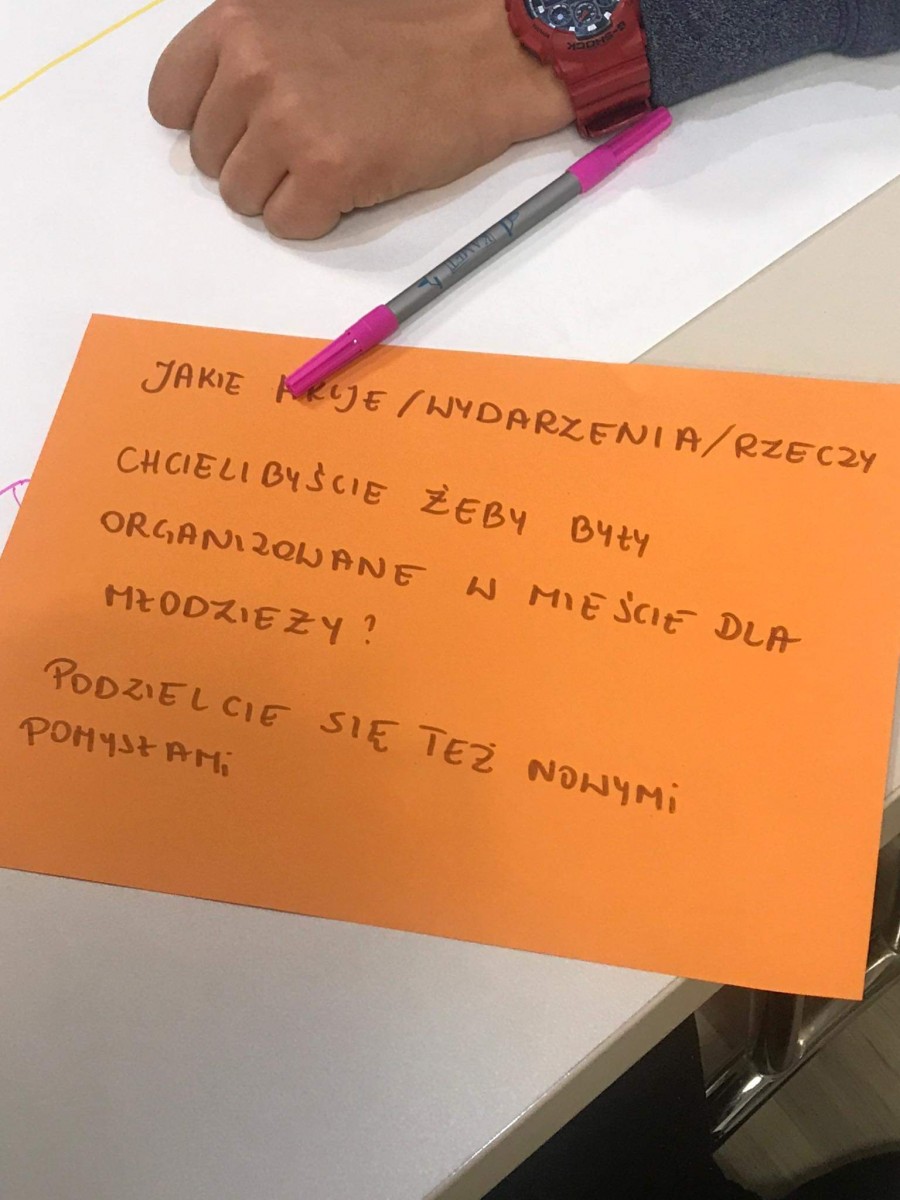 G-SHOCK
JAKIE AKCJE/WYDARZENIA/RZECZY
CHCIELIBYŚCIE ŻEBY BYŁY
ORGANIZOWANE W MIEŚCIE DLA
MŁODZIEŻY?
PODZIELCIE SIĘ TEŻ NOWYMi
POMYSŁAMi